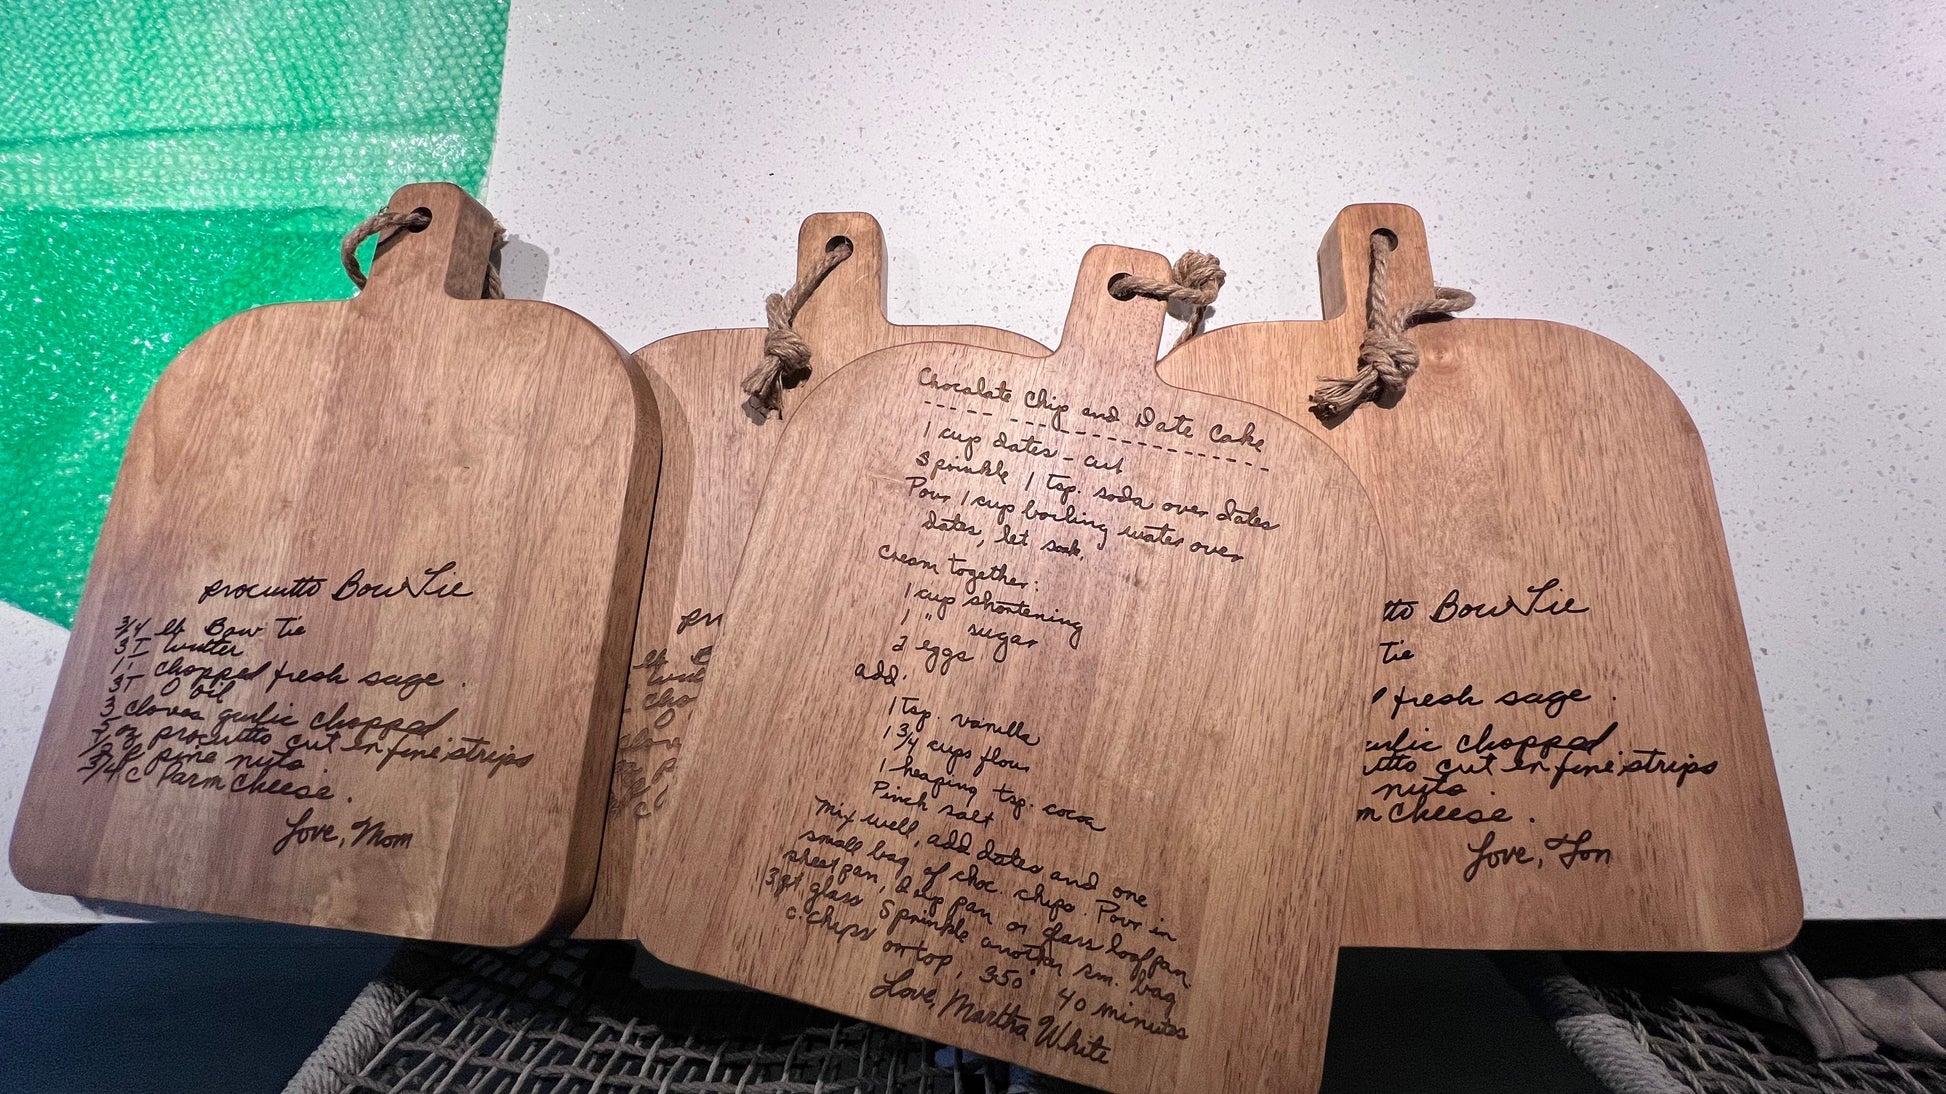 procuitto Bow Tie
3/4 lb Bow Tie
3T butter
1T chopped fresh sage.
3T O oil
3 cloves garlic chopped
5 oz procuitto cut in fine strips
pine nuts
3/4 c Parm cheese.
Love, Mom
pr
lb B
butt
cho
O
clove
c
Chocolate Chip and Date Cake
1 cup dates - cut
Sprinkle 1 tsp. soda over dates
Pour 1 cup boiling water over
dates, let soak.
Cream together:
1 cup shortening
1 " sugar
2 eggs
add.
1 tsp. vanilla
1 3/4 cups flour
1 heaping tsp. cocoa
Pinch salt
Mix well, add dates and one
small bag of choc. chips. Pour in
sheet pan, 2 up pan or glass loaf pan.
3 qt glass Sprinkle another sm. bag
c. chips on top, 350° 40 minutes
Love, Martha White
tto Bow Tie
Tie
fresh sage.
arlic chopped
itto cut in fine strips
nuts
m cheese.
Love, Fon